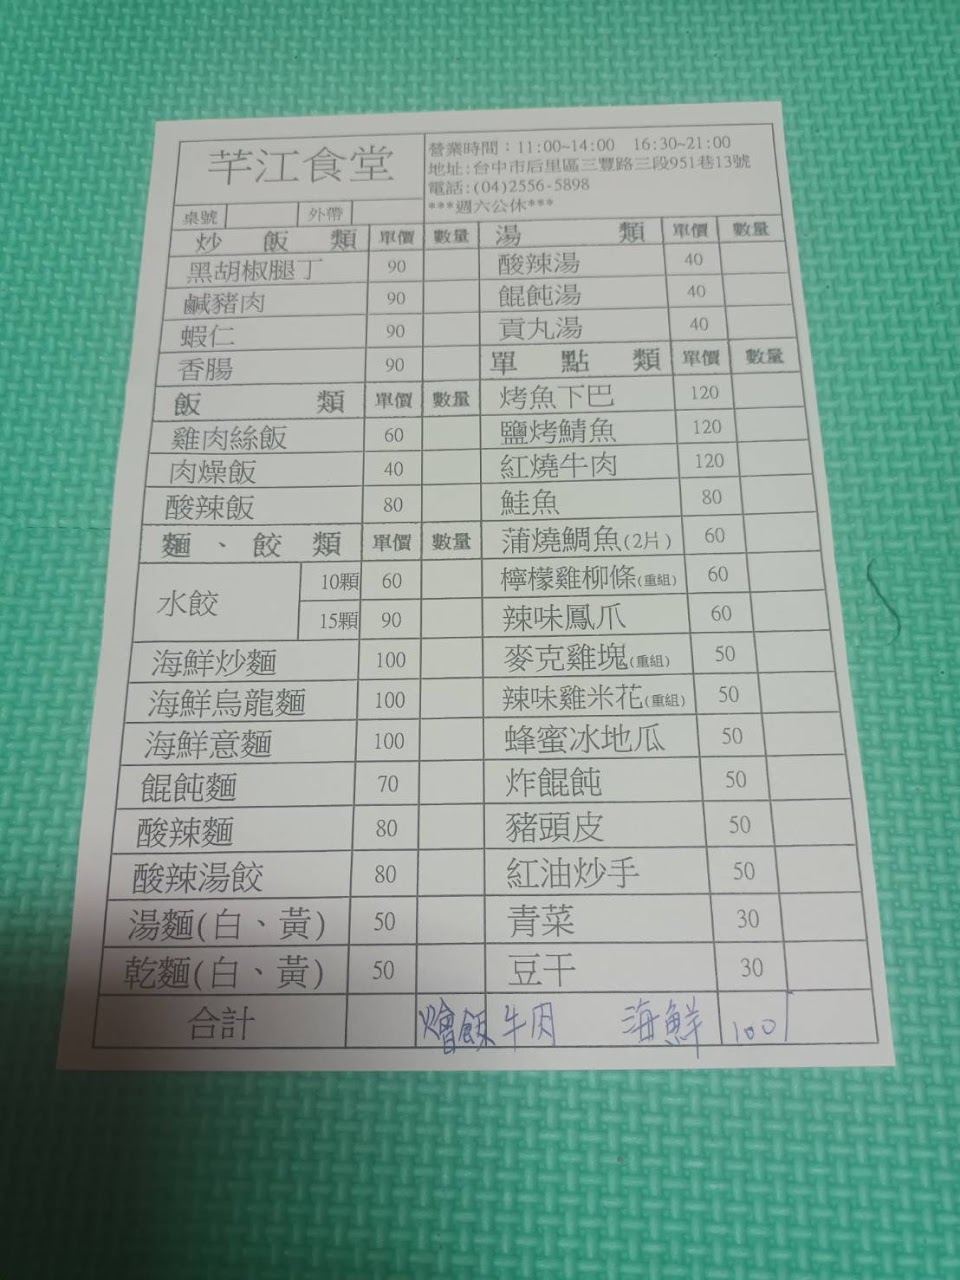 芊江食堂
營業時間：11:00~14:00 16:30~21:00
地址:台中市后里區三豐路三段951巷13號
電話:(04)2556-5898
***週六公休***
桌號 外帶
炒飯類 單價 數量
黑胡椒腿丁 90
鹹豬肉 90
蝦仁 90
香腸 90
飯類 單價 數量
雞肉絲飯 60
肉燥飯 40
酸辣飯 80
麵、餃類 單價 數量
水餃 10顆 60
15顆 90
海鮮炒麵 100
海鮮烏龍麵 100
海鮮意麵 100
餛飩麵 70
酸辣麵 80
酸辣湯餃 80
湯麵(白、黃) 50
乾麵(白、黃) 50
湯類 單價 數量
酸辣湯 40
餛飩湯 40
貢丸湯 40
單點類 單價 數量
烤魚下巴 120
鹽烤鯖魚 120
紅燒牛肉 120
鮭魚 80
蒲燒鯛魚(2片) 60
檸檬雞柳條(重組) 60
辣味鳳爪 60
麥克雞塊(重組) 50
辣味雞米花(重組) 50
蜂蜜冰地瓜 50
炸餛飩 50
豬頭皮 50
紅油炒手 50
青菜 30
豆干 30
合計 燴飯 牛肉 海鮮 100/